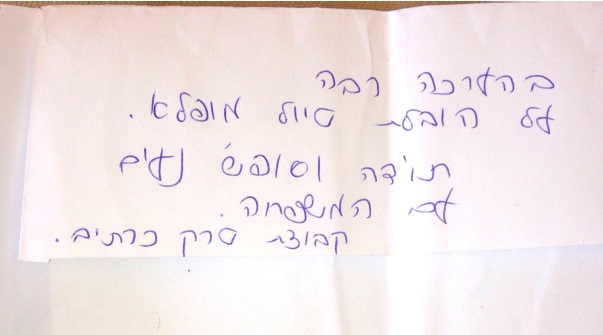 בהערכה רבה
על הובלת טיול מופלא.
תודה וסופש נעים
עם המשפחה.
קבוצת טרק כרתים.